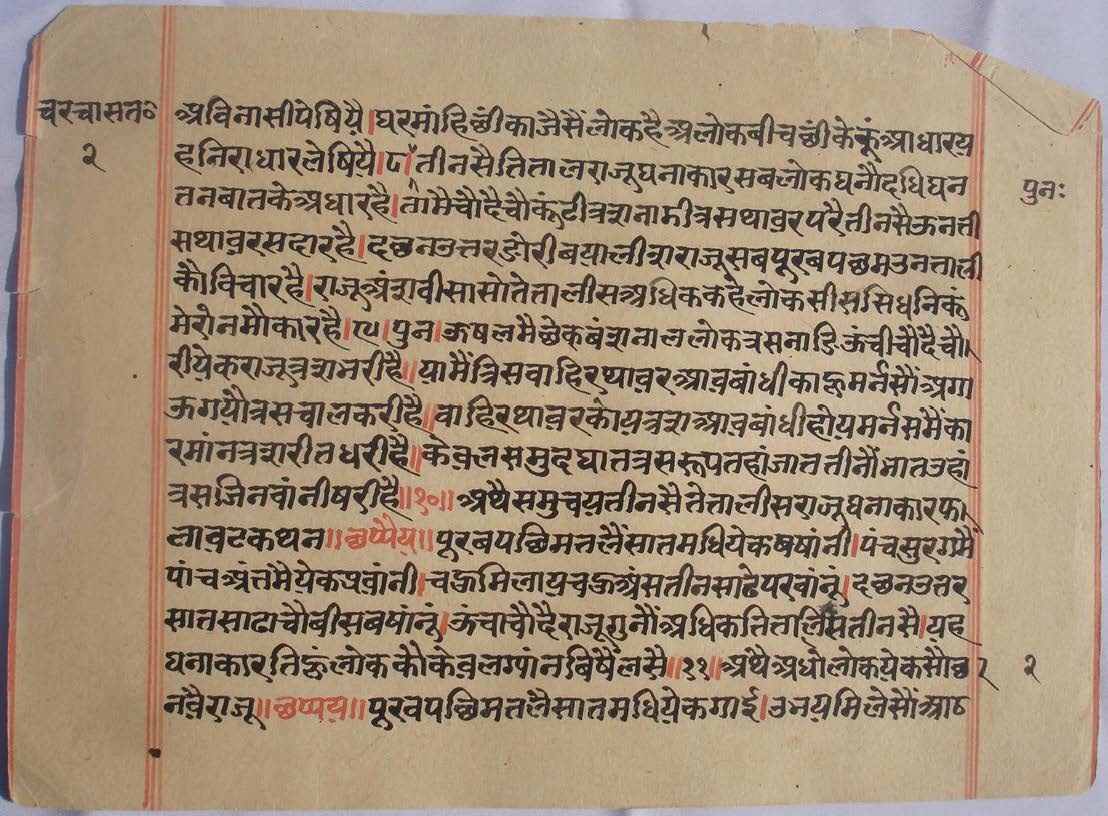 चरचासत॰
२
अविनासीपेषियै।घरमांहिछींकाजैसैंलोकहैअलोकबीचछींकेकूंआधारय
हनिराधारलेषियै।८।तीनसैतितालराजूघनाकारसबलोकघनौदधिघन
पुनः
तनबातकेअधारहै।तामैचौदैचौकूंटी
सथावरसदारहै।दछनउत्तरडोरीबयालीसराजूसबपूरबपछमउनताली
कौविचारहै।राजूअंसवीसासोतेतालीसअधिककहैलोकसीससिधनिकूं
मेरोनमौकारहै।९।पुन।ऊषलमैछेकबंसनाललोकत्रसनाडिऊंचीचौदैचौ
रीयेकराजूत्रसभरीहै॥यामैंत्रिसबाहिरथावरआवबांधीकाहूमर्नसौंअगा
ऊगयौत्रसचालकरीहै॥वाहिरथावरकोयत्रसआवबांधीहोयमर्नसमैंका
रमांनत्रसरीतधरीहै॥केवलसमुदघातत्रसरूपतहांजाततीनौंभातउहां
त्रसजिनवांनीषरीहै॥१०॥अथैसमुचयतीनसैतेतालीसराजूघनाकारफा
लावटकथन॥छप्पैय॥पूरबपछिमतलैंसातमधियेकबषांनी।पंचसुरगमैं
पांचअंतमैयेकप्रवांनी।चहूमिलायचहूअंसतीनसाढेपरवांनूं।दछनउत्तर
सातसाढाचौबीसबषांनूं।ऊंचाचौदैराजूगुनौंअधिकतितालिसतीनसै।यह
घनाकारतिहूंलोककौकेवलग्यांनबिषैंलसै॥११॥अथैअधोलोकयेकसौछ
२
नवैराजू॥छप्पय॥पूरवपछिमतलैसातमधियेकगाई।उभयमिलेसौंआठ